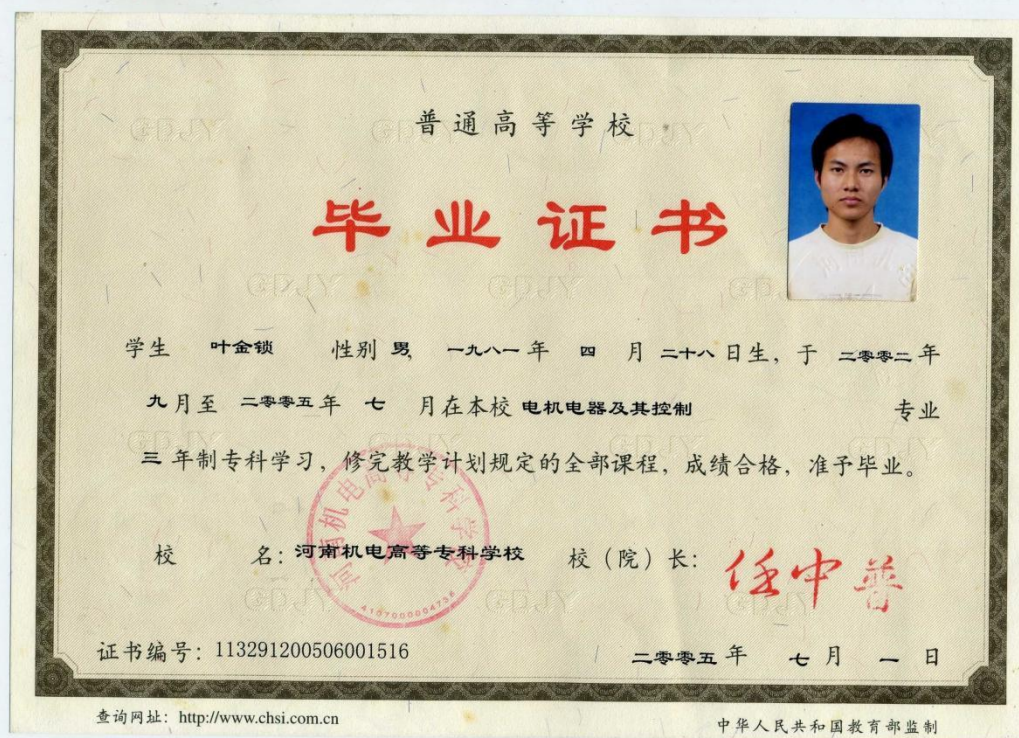 普通高等学校
毕业证书
学生 叶金锁 性别 男, 一九八一 年 四 月 二十八 日生, 于 二零零二 年
九 月至 二零零五 年 七 月在本校 电机电器及其控制 专业
三 年制专科学习, 修完教学计划规定的全部课程, 成绩合格, 准予毕业。
校 名: 河南机电高等专科学校 校（院）长: 任中普
河南机电高等专科学校
4107000004736
证书编号: 113291200506001516
二零零五 年 七 月 一 日
查询网址: http://www.chsi.com.cn
中华人民共和国教育部监制
GDJY GDJY GDJY
GDJY GDJY GDJY
GDJY GDJY GDJY
GDJY GDJY GDJY